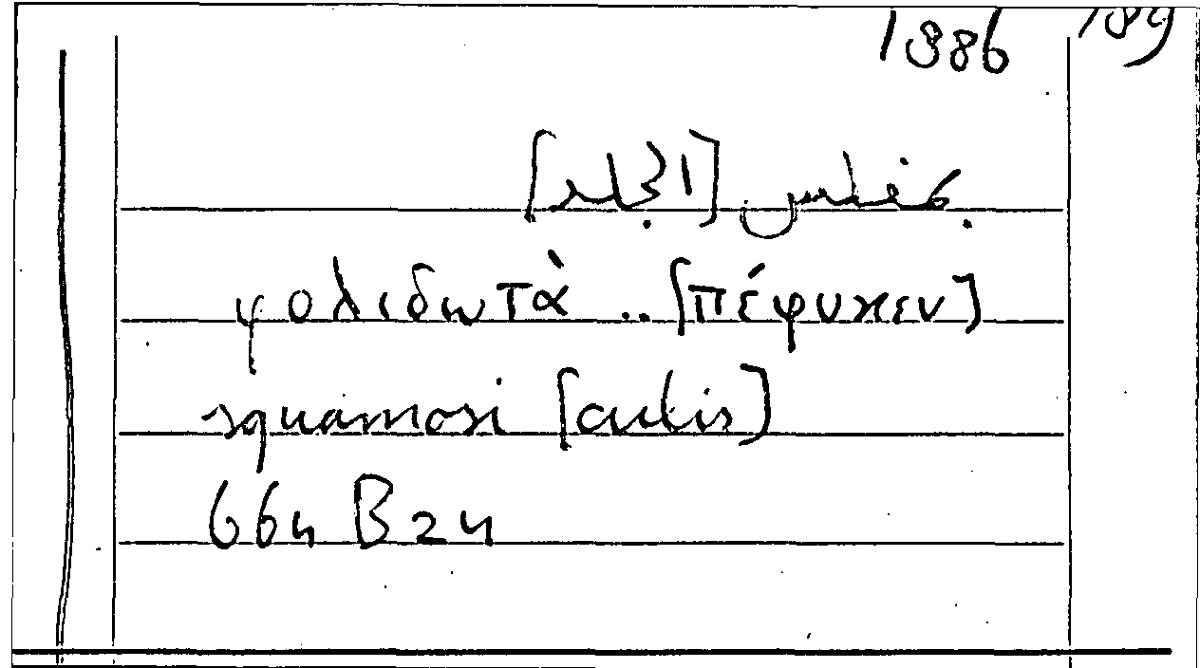 1886 189
مفلس [الجلد]
φολιδωτὰ .. [πέφυκεν]
squamosi [cutis]
664 B 24